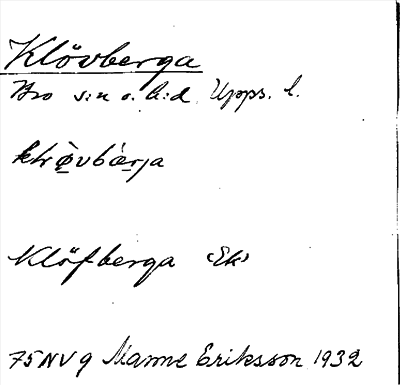 Klövberga
Bro s:n o. h:d, Upps. l.
Klöfberga (Ek)
75NV9 Manne Eriksson 1932